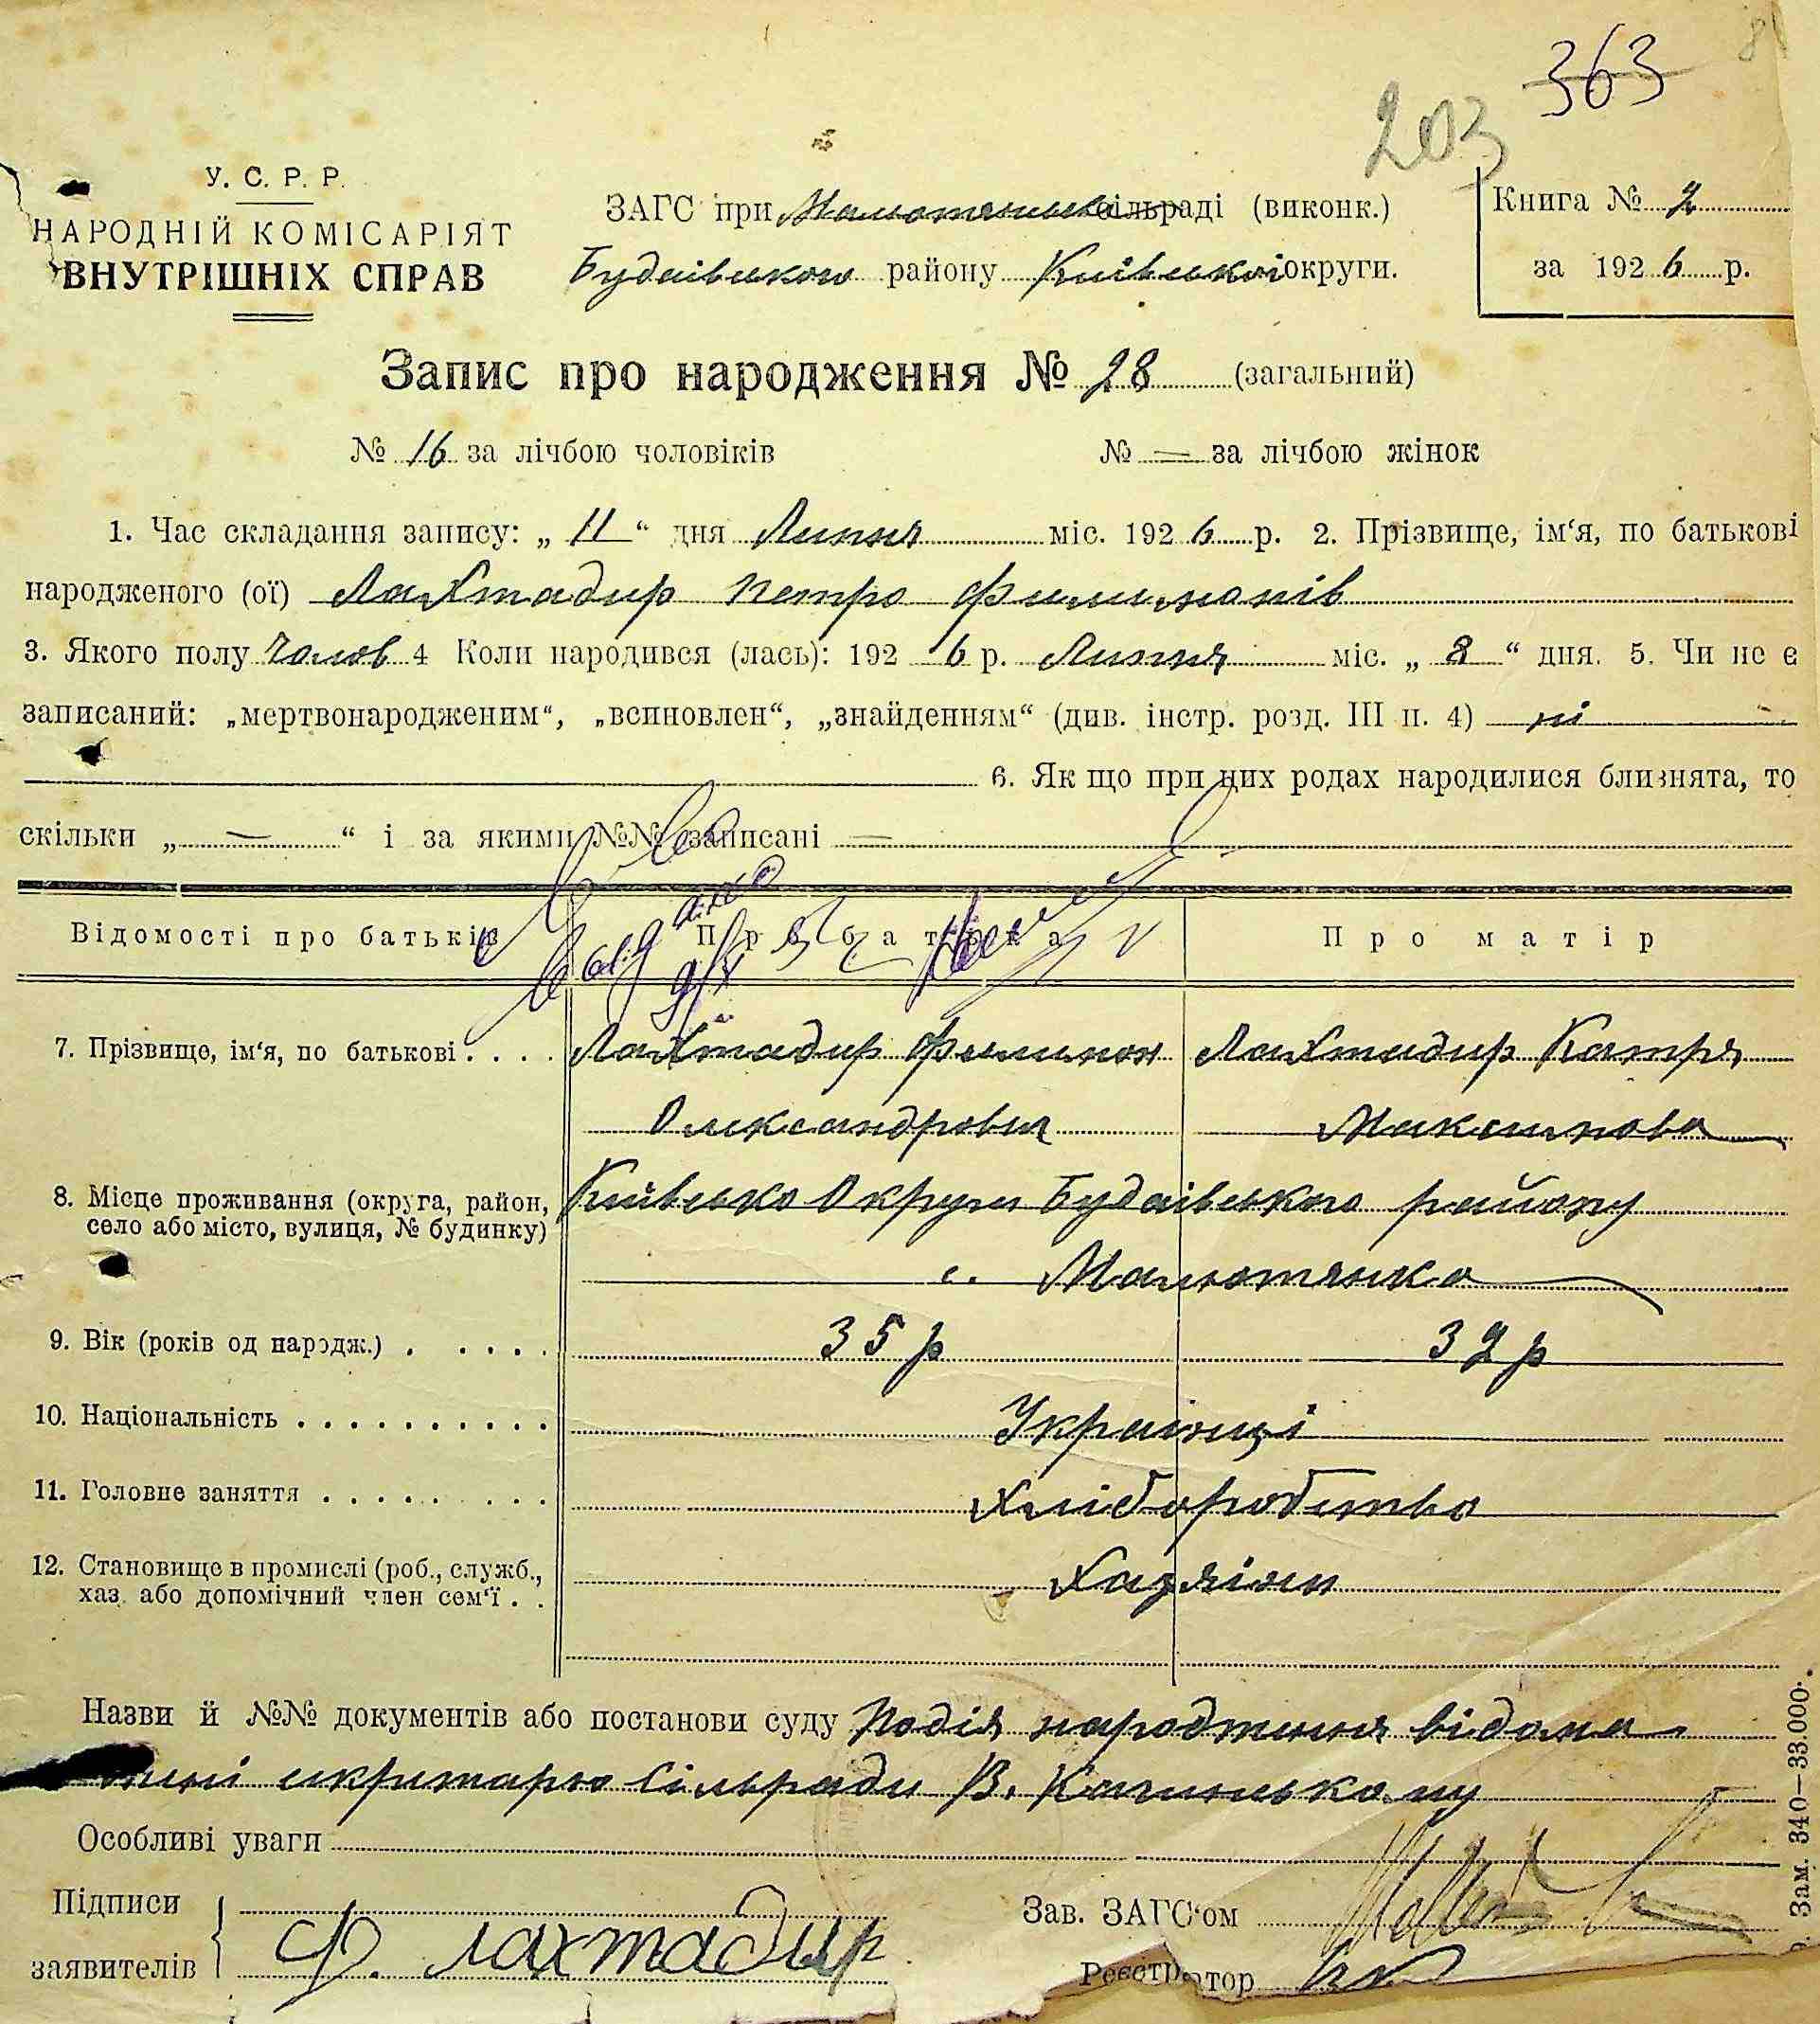 363
203
У. С. Р. Р.
НАРОДНІЙ КОМІСАРІЯТ
ВНУТРІШНІХ СПРАВ
ЗАГС при Малютянськ сільраді (виконк.)
Будаівського району Киівськоі округи.
Книга № 2
за 1926 р.
Запис про народження № 28 (загальний)
№ 16 за лічбою чоловіків № — за лічбою жінок
1. Час складання запису: „ 11 “ дня Липня міс. 1926 р. 2. Прізвище, ім‘я, по батькові
народженого (ої) Лахтадир Петро Филимонів
3. Якого полу Чолов 4 Коли народився (лась): 1926 р. Липня міс. „ 8 “ дня. 5. Чи не є
записаний: „мертвонародженим“, „всиновлен“, „знайденням“ (див. інстр. розд. III п. 4) ні
6. Як що при цих родах народилися близнята, то
скільки „ — “ і за якими №№ записані —
Відомості про батьків Про батька Про матір
7. Прізвище, ім‘я, по батькові . . . . Лахтадир Филимон Лахтадир Катря
Олександрович Максимова
8. Місце проживання (округа, район, Київсько Округи Будаівського району
село або місто, вулиця, № будинку)
с. Малютянка
9. Вік (років од народж.) . . . . . 35 р 32 р
10. Національність . . . . . . . . . . Украінці
11. Головне заняття . . . . . . . . Хліборобство
12. Становище в промислі (роб., служб., Хазяіни
хаз. або допомічний член сем‘ї . .
Назви й №№ документів або постанови суду Подія народження відома
мені секритарю Сільради В. Качинському
Особливі уваги
Підписи
заявителів Ф. Лахтадир
Зав. ЗАГС‘ом
Реєстратор
Зам. 340—33.000.